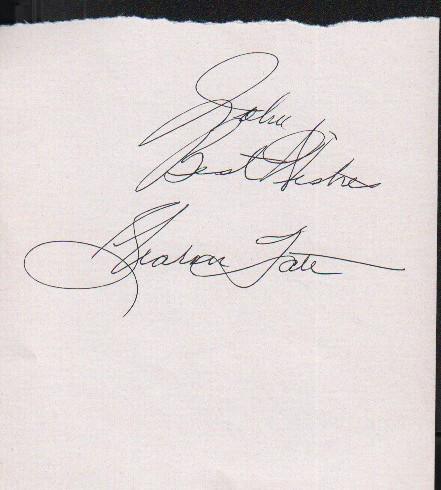 John
Best Wishes
Sharon Tate